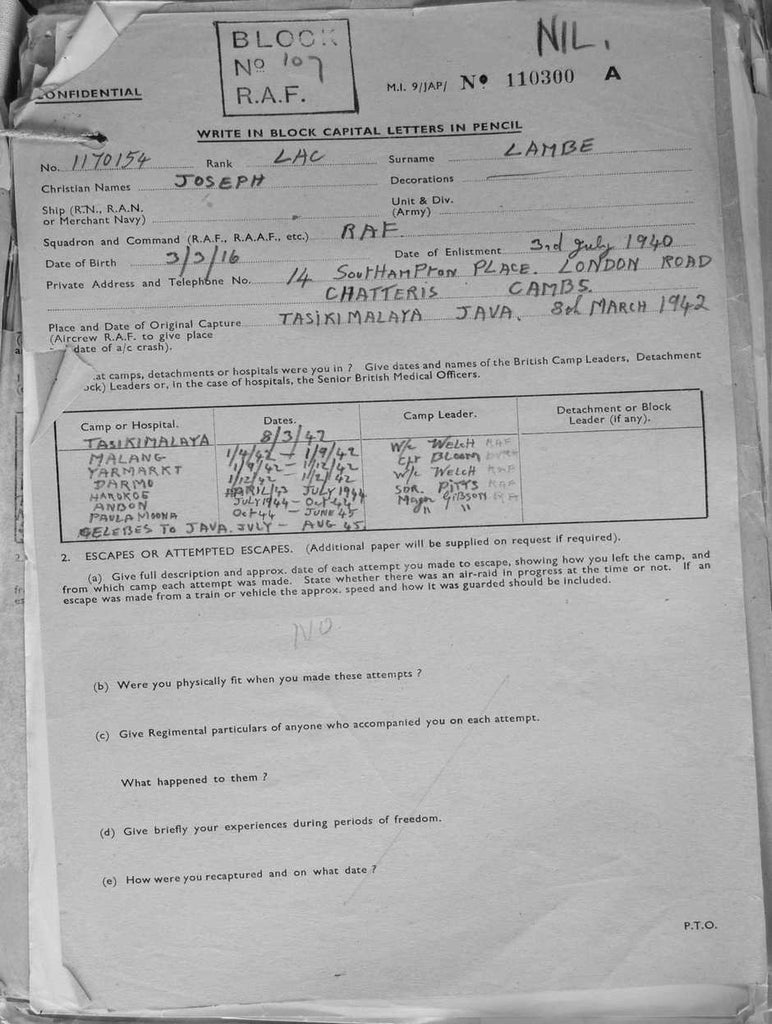 BLOCK
No 107
R.A.F.
NIL.
CONFIDENTIAL
M.I. 9/JAP/ No 110300 A
WRITE IN BLOCK CAPITAL LETTERS IN PENCIL
No. 1170154 Rank LAC Surname LAMBE
Christian Names JOSEPH Decorations
Ship (R.N., R.A.N. or Merchant Navy) Unit & Div. (Army)
Squadron and Command (R.A.F., R.A.A.F., etc.) RAF
Date of Birth 3/3/16 Date of Enlistment 3rd July 1940
Private Address and Telephone No. 14 SOUTHAMPTON PLACE. LONDON ROAD
CHATTERIS CAMBS.
Place and Date of Original Capture TASIKIMALAYA JAVA. 8th MARCH 1942
(Aircrew R.A.F. to give place
date of a/c crash).
at camps, detachments or hospitals were you in ? Give dates and names of the British Camp Leaders, Detachment
ock) Leaders or, in the case of hospitals, the Senior British Medical Officers.
Camp or Hospital. Dates. Camp Leader. Detachment or Block Leader (if any).
TASIKIMALAYA 8/3/42
MALANG 1/4/42 - 1/9/42 W/c WELCH RAF
YARMARKT 1/9/42 - 1/12/42
DARMO 1/12/42 1/2/42 W/c WELCH RAF
HAROKOE APRIL/43 JULY 1944 SDR. PITTS RAF
AMBON JULY 1944 - Oct 44 Major GIBSON RA
PAULA MOONA Oct 44 - JUNE 45 " "
CELEBES TO JAVA. JULY - AUG 45.
2. ESCAPES OR ATTEMPTED ESCAPES. (Additional paper will be supplied on request if required).
(a) Give full description and approx. date of each attempt you made to escape, showing how you left the camp, and
from which camp each attempt was made. State whether there was an air-raid in progress at the time or not. If an
escape was made from a train or vehicle the approx. speed and how it was guarded should be included.
NO
(b) Were you physically fit when you made these attempts ?
(c) Give Regimental particulars of anyone who accompanied you on each attempt.
What happened to them ?
(d) Give briefly your experiences during periods of freedom.
(e) How were you recaptured and on what date ?
P.T.O.